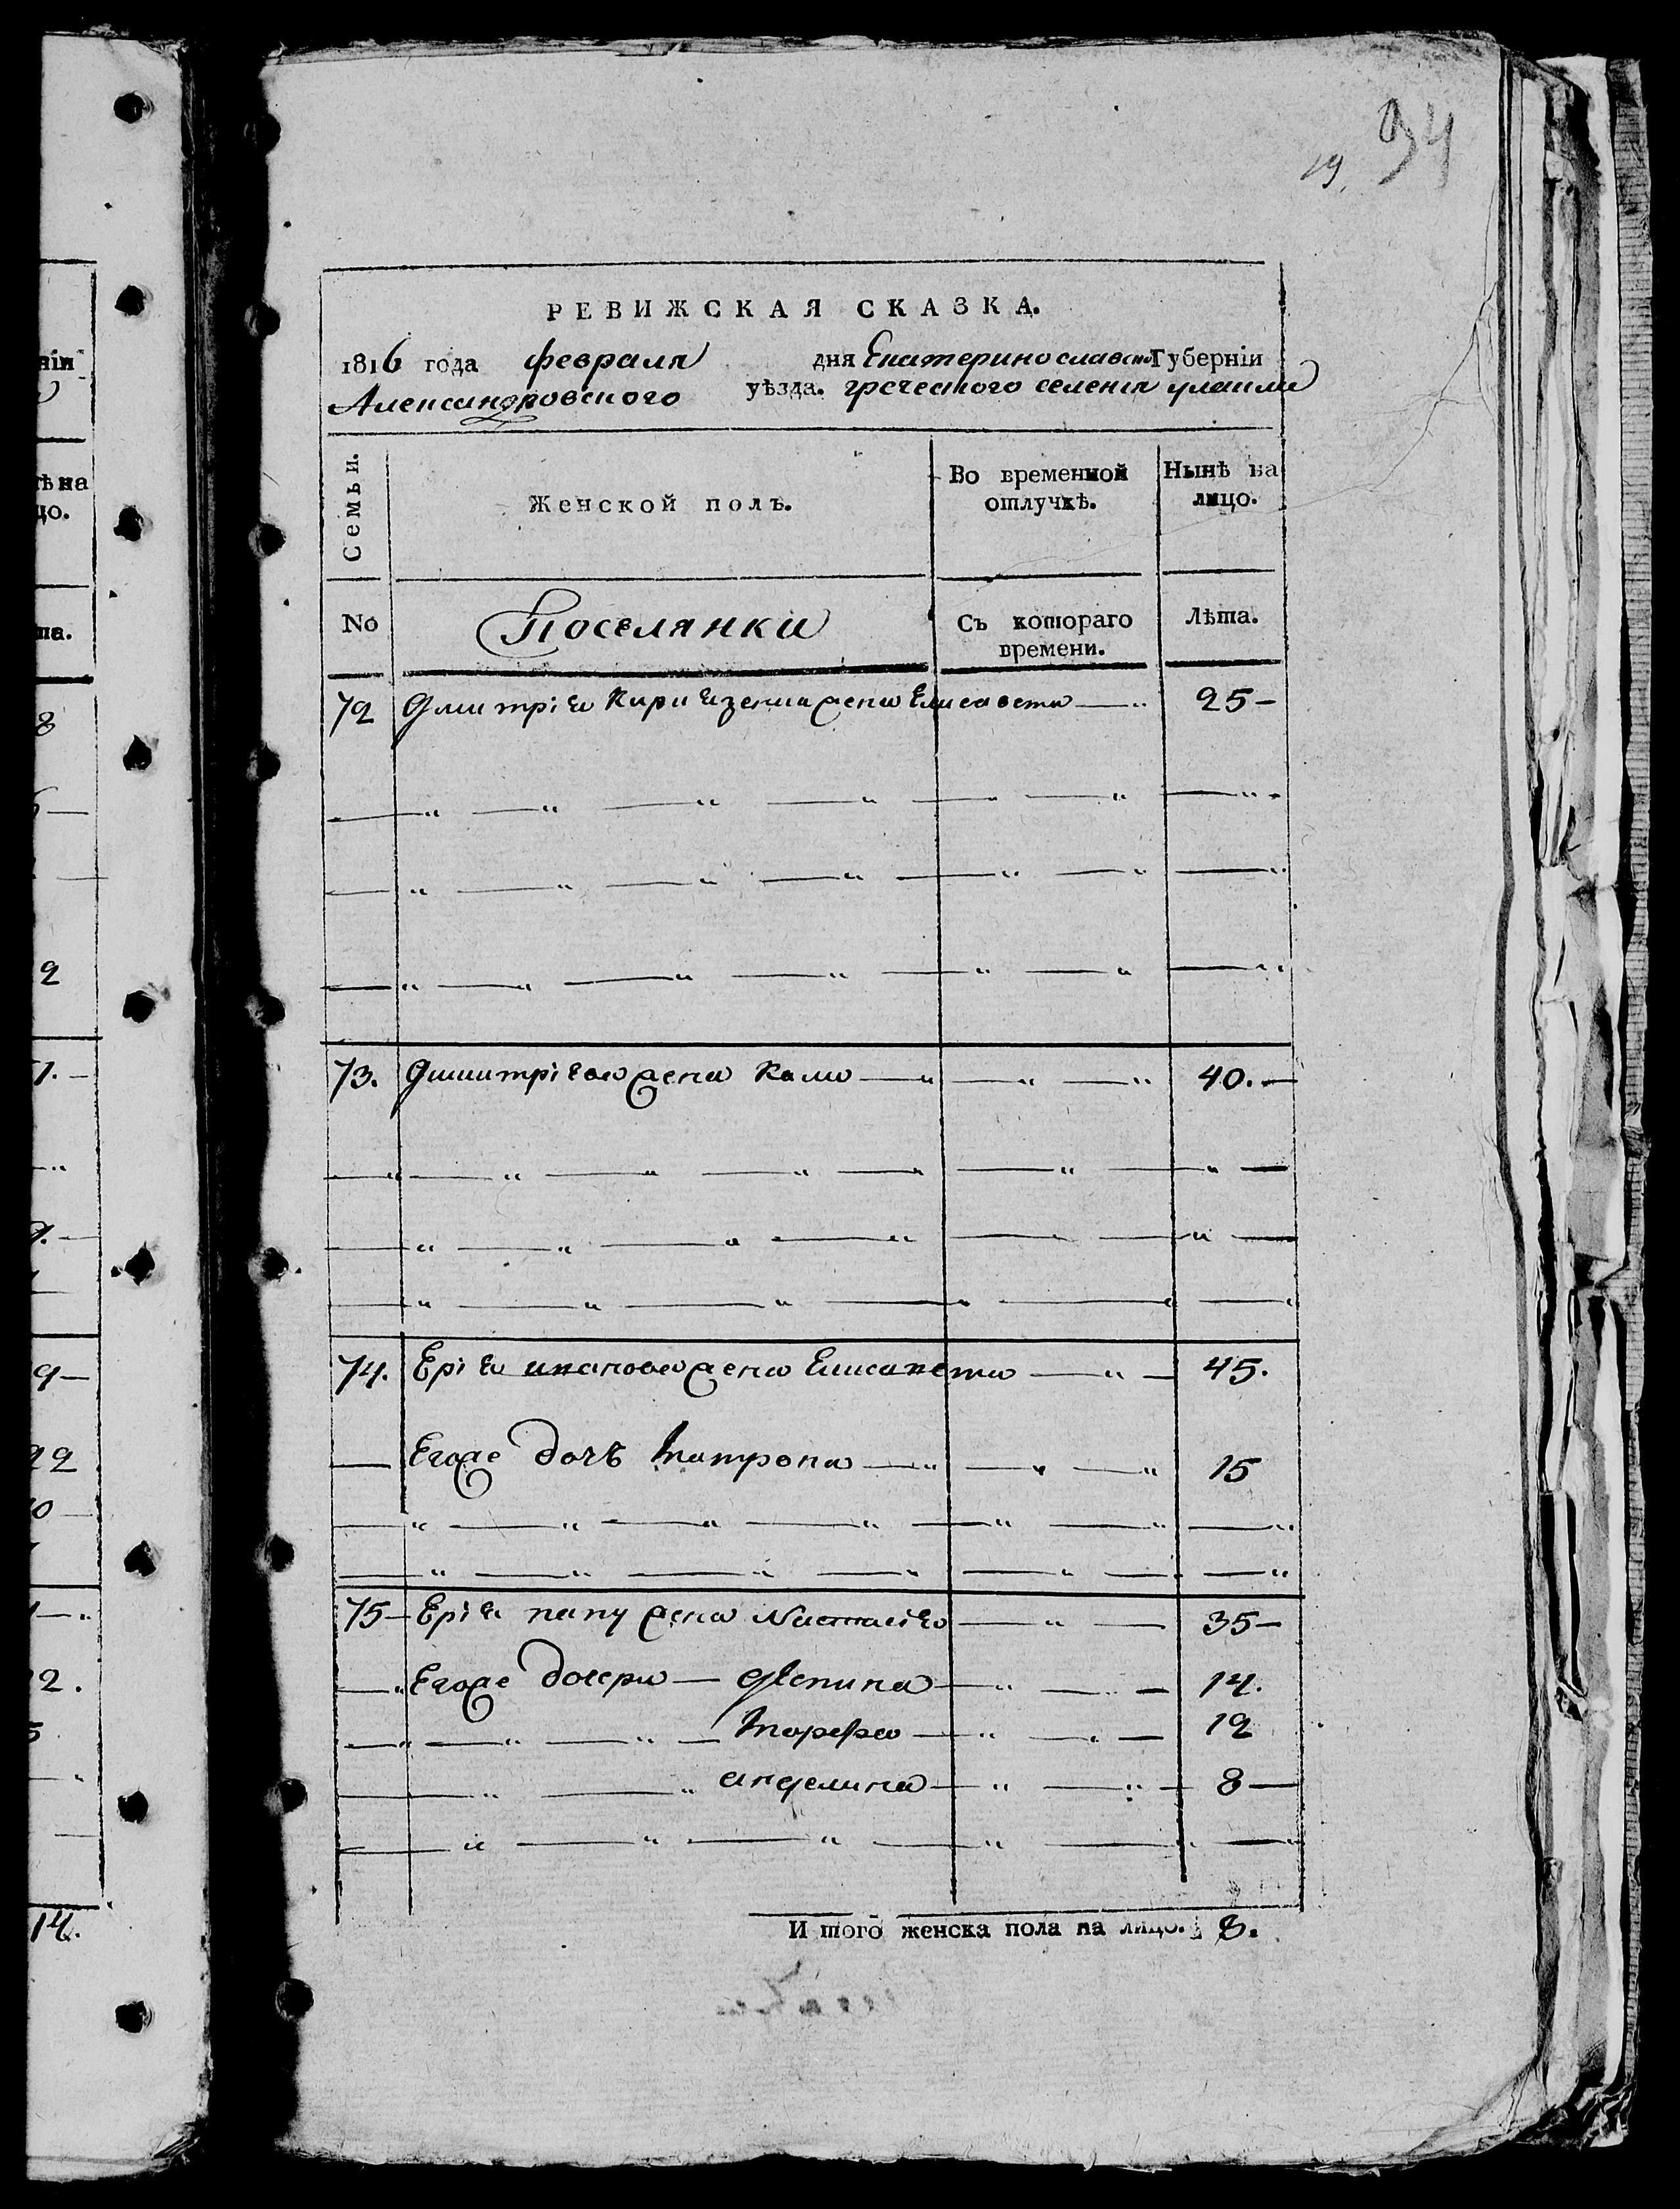 94
19.
РЕВИЖСКАЯ СКАЗКА.
1816 года февраля дня Екатеринославской Губерніи
Александровского уѣзда. греческого селенія улаклы
Семьи.
Женской полъ.
Во временной отлучкѣ.
Нынѣ на лицо.
No
Поселянки
Съ котораго времени.
Лѣта.
72 Дмитрія Кири жена Елисавета — 25 —
73. Дмитріева жена Кало — 40. —
74. Ерія жена Елисавета — 45.
Егоже дочъ Матрона — 15
75 — Ерія папу жена Настасія — 35 —
Егоже дочери — 14.
Марфа — 12
анделина — 8 —
И того женска пола на лицо. 8.
нія
ѣ на
цо.
та.
8
2
9 —
22
14.